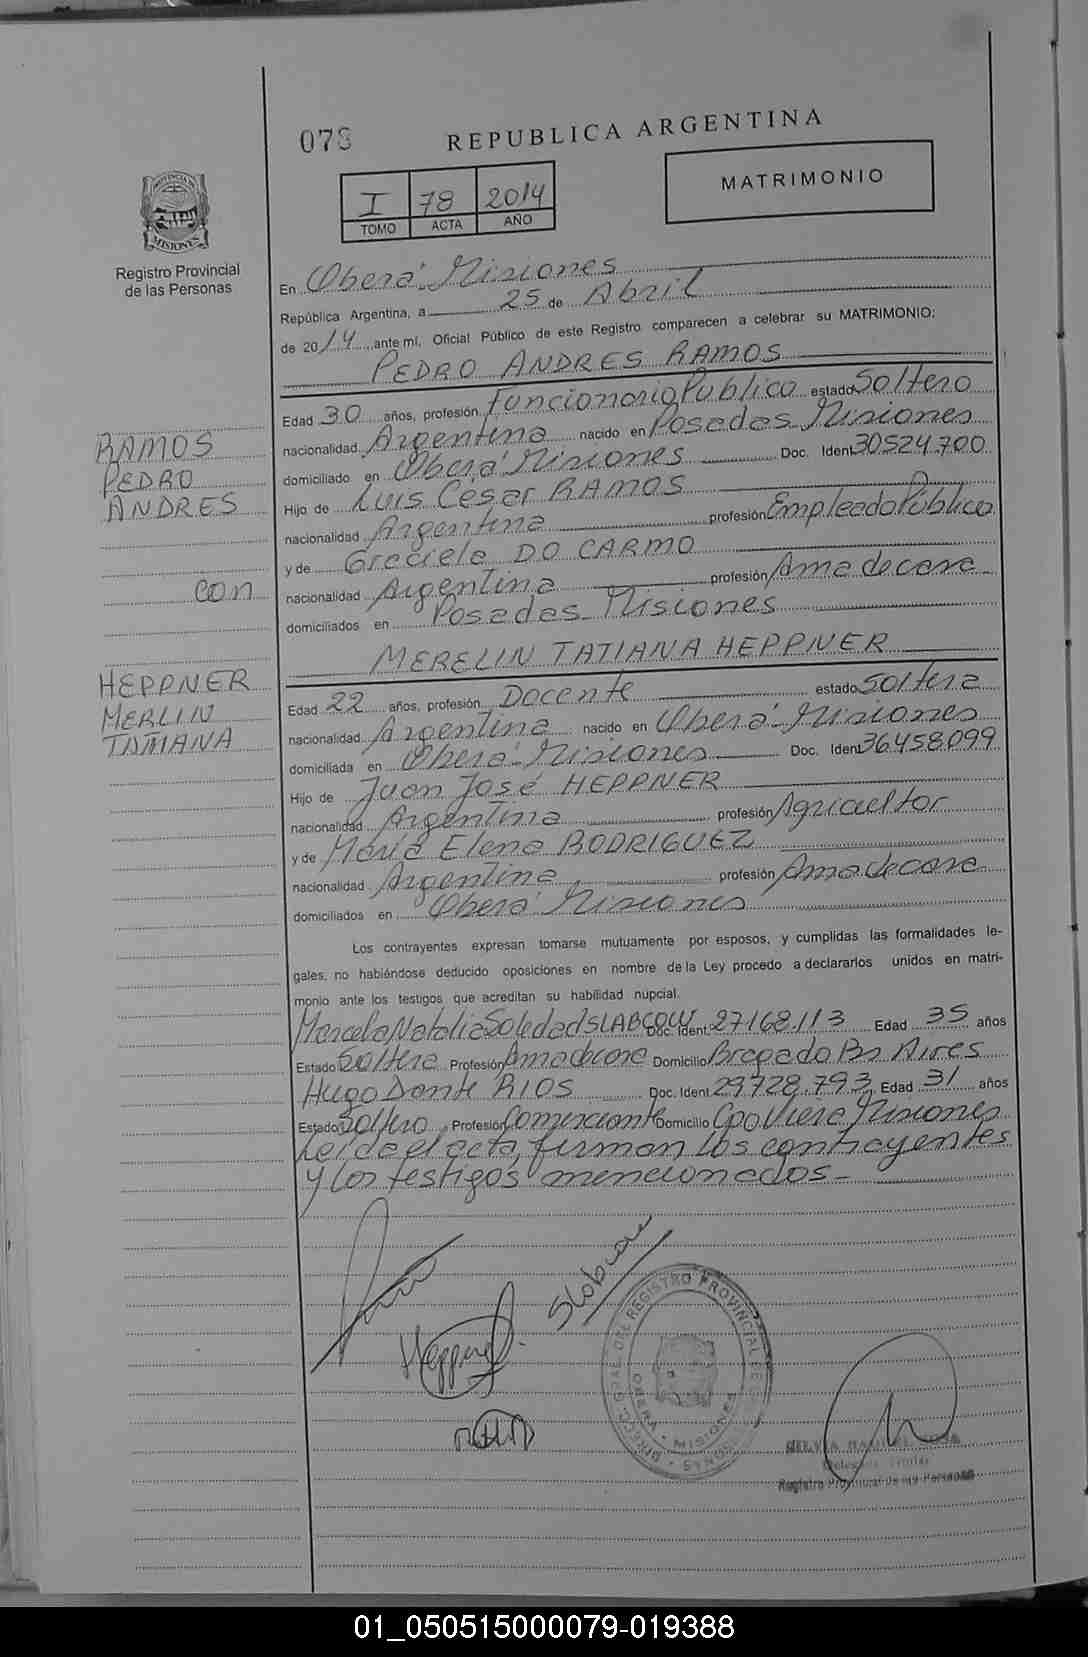 078
REPUBLICA ARGENTINA
I 78 2014
TOMO ACTA AÑO
MATRIMONIO
PROVINCIA DE
MISIONES
Registro Provincial
de las Personas
En Oberá - Misiones
República Argentina, a 25 de Abril
de 2014 ante mí, Oficial Público de este Registro comparecen a celebrar su MATRIMONIO:
PEDRO ANDRES RAMOS
Edad 30 años, profesión Funcionario Publico estado Soltero
nacionalidad Argentina nacido en Posadas Misiones
domiciliado en Oberá Misiones Doc. Ident 30524.700
Hijo de Luis César RAMOS
nacionalidad Argentina profesión Empleado Público
y de Graciela DO CARMO
nacionalidad Argentina profesión Ama de casa
domiciliados en Posadas Misiones
RAMOS
PEDRO
ANDRES
con
HEPPNER
MERLIN
TATIANA
MERELIN TATIANA HEPPNER
Edad 22 años, profesión Docente estado Soltera
nacionalidad Argentina nacido en Oberá - Misiones
domiciliada en Oberá - Misiones Doc. Ident 36.458.099
Hijo de Juan José HEPPNER
nacionalidad Argentina profesión Agricultor
y de María Elena RODRIGUEZ
nacionalidad Argentina profesión Ama de casa
domiciliados en Oberá Misiones
Los contrayentes expresan tomarse mutuamente por esposos, y cumplidas las formalidades le-
gales, no habiéndose deducido oposiciones en nombre de la Ley procedo a declararlos unidos en matri-
monio ante los testigos que acreditan su habilidad nupcial.
Marcela Natalia Soledad Doc. Ident. 27.168.113 Edad 35 años
Estado Soltera Profesión Ama de casa Domicilio Bragado Bs Aires
Hugo Dante RIOS Doc. Ident 29.728.793 Edad 31 años
Estado Soltero Profesión Comerciante Domicilio Cpo Viera Misiones
Leída el acta, firman los contrayentes
y los testigos mencionados -
Heppner
DIRECC. GRAL. DEL REGISTRO PROVINCIAL DE LAS PERSONAS
OBERA - MISIONES
Delegada Titular
Registro Provincial de las Personas
01_050515000079-019388